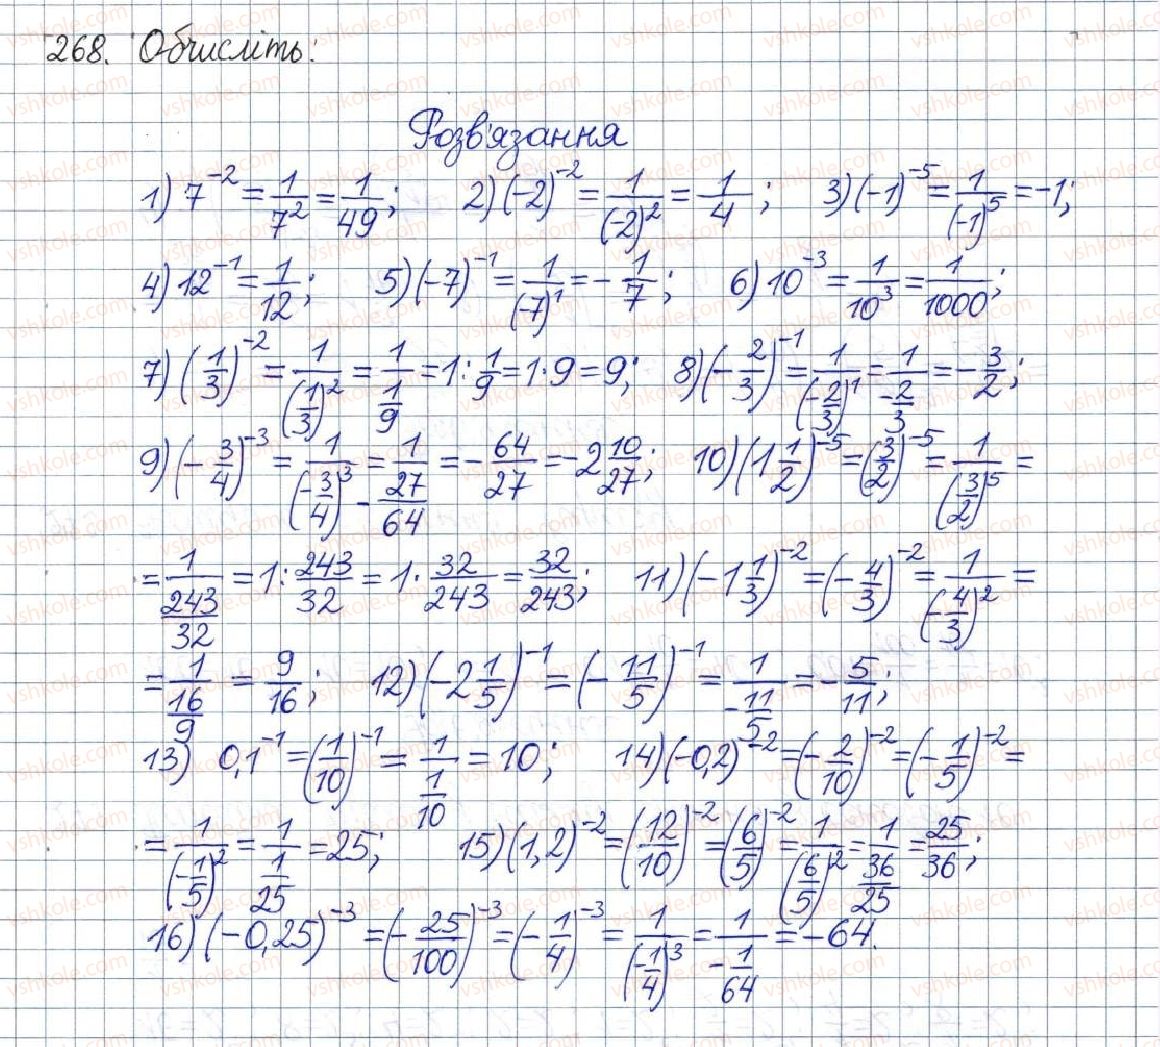 268. Обчисліть:
Розв'язання
1) 7^{-2} = \frac{1}{7^2} = \frac{1}{49}; 2) (-2)^{-2} = \frac{1}{(-2)^2} = \frac{1}{4}; 3) (-1)^{-5} = \frac{1}{(-1)^5} = -1;
4) 12^{-1} = \frac{1}{12}; 5) (-7)^{-1} = \frac{1}{(-7)^1} = -\frac{1}{7}; 6) 10^{-3} = \frac{1}{10^3} = \frac{1}{1000};
7) (\frac{1}{3})^{-2} = \frac{1}{(\frac{1}{3})^2} = \frac{1}{\frac{1}{9}} = 1:\frac{1}{9} = 1·9 = 9; 8) (-\frac{2}{3})^{-1} = \frac{1}{(-\frac{2}{3})^1} = \frac{1}{-\frac{2}{3}} = -\frac{3}{2};
9) (-\frac{3}{4})^{-3} = \frac{1}{(-\frac{3}{4})^3} = \frac{1}{-\frac{27}{64}} = -\frac{64}{27} = -2\frac{10}{27}; 10) (1\frac{1}{2})^{-5} = (\frac{3}{2})^{-5} = \frac{1}{(\frac{3}{2})^5} =
= \frac{1}{\frac{243}{32}} = 1:\frac{243}{32} = 1·\frac{32}{243} = \frac{32}{243}; 11) (-1\frac{1}{3})^{-2} = (-\frac{4}{3})^{-2} = \frac{1}{(-\frac{4}{3})^2} =
= \frac{1}{\frac{16}{9}} = \frac{9}{16}; 12) (-2\frac{1}{5})^{-1} = (-\frac{11}{5})^{-1} = \frac{1}{-\frac{11}{5}} = -\frac{5}{11};
13) 0,1^{-1} = (\frac{1}{10})^{-1} = \frac{1}{\frac{1}{10}} = 10; 14) (-0,2)^{-2} = (-\frac{2}{10})^{-2} = (-\frac{1}{5})^{-2} =
= \frac{1}{(-\frac{1}{5})^2} = \frac{1}{\frac{1}{25}} = 25; 15) (1,2)^{-2} = (\frac{12}{10})^{-2} = (\frac{6}{5})^{-2} = \frac{1}{(\frac{6}{5})^2} = \frac{1}{\frac{36}{25}} = \frac{25}{36};
16) (-0,25)^{-3} = (-\frac{25}{100})^{-3} = (-\frac{1}{4})^{-3} = \frac{1}{(-\frac{1}{4})^3} = \frac{1}{-\frac{1}{64}} = -64.